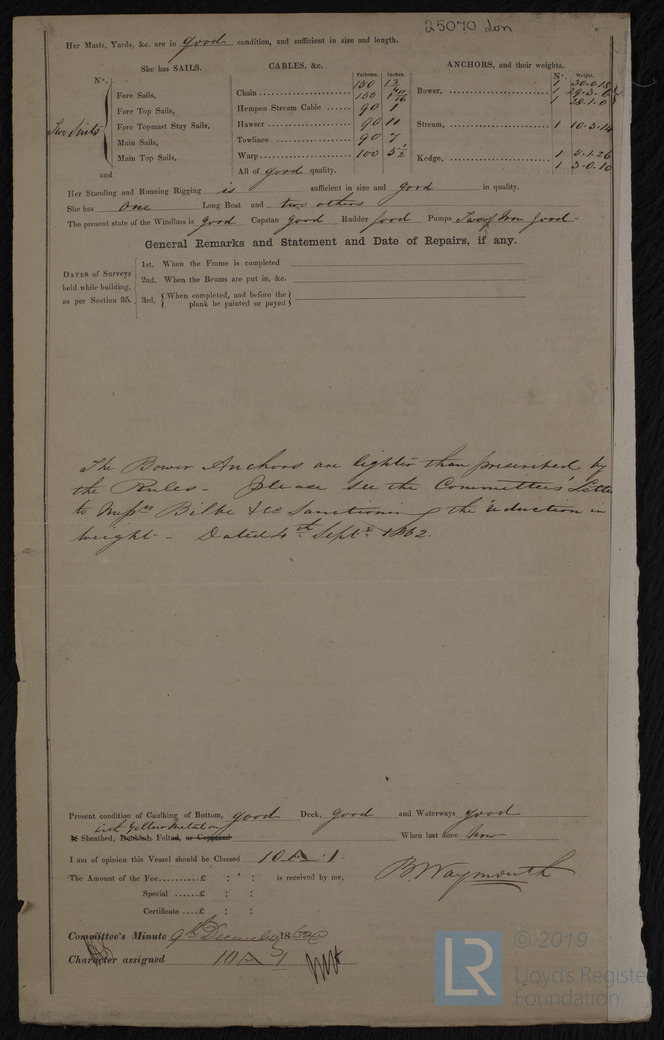 25070 Lon
Her Masts, Yards, &c. are in good condition, and sufficient in size and length.
She has SAILS.
CABLES, &c.
ANCHORS, and their weights,
Fathoms. Inches.
Nº. Weight.
Nº.
Two Suits
Fore Sails,
Fore Top Sails,
Fore Topmast Stay Sails,
Main Sails,
Main Top Sails,
and
Chain 150
150 1 11/16
Hempen Stream Cable 90 1
Hawser 90 11
Towlines 90 7
Warp 100 5 1/2
All of good quality.
Bower, 1 30.0.18
1 29.3.0
1 28.1.0
Stream, 1 10.3.14
Kedge, 1 5.1.26
1 3.0.10
Her Standing and Running Rigging is sufficient in size and good in quality.
She has one Long Boat and two others
The present state of the Windlass is good Capstan good Rudder good Pumps Two of Iron good
General Remarks and Statement and Date of Repairs, if any.
DATES of Surveys held while building, as per Section 35.
1st. When the Frame is completed
2nd. When the Beams are put in, &c.
3rd. { When completed, and before the plank be painted or payed }
The Bower Anchors are lighter than prescribed by
the Rules - please see the Committees' Letter
to Messrs Bilbe & Co Sanctioning the reduction in
weight - Dated 4th Septr 1862.
Present condition of Caulking of Bottom, good Deck, good and Waterways good
with Yellow Metal on
Is Sheathed, Doubled, Felted, or Coppered When last done Now
I am of opinion this Vessel should be Classed 10 A 1
The Amount of the Fee..........£ : : is received by me,
B Waymouth
Special ......£ : :
Certificate ....£ : :
Committee's Minute 9th December 1862
Character assigned 10 A 1
© 2019
LR
Lloyd's Register
Foundation